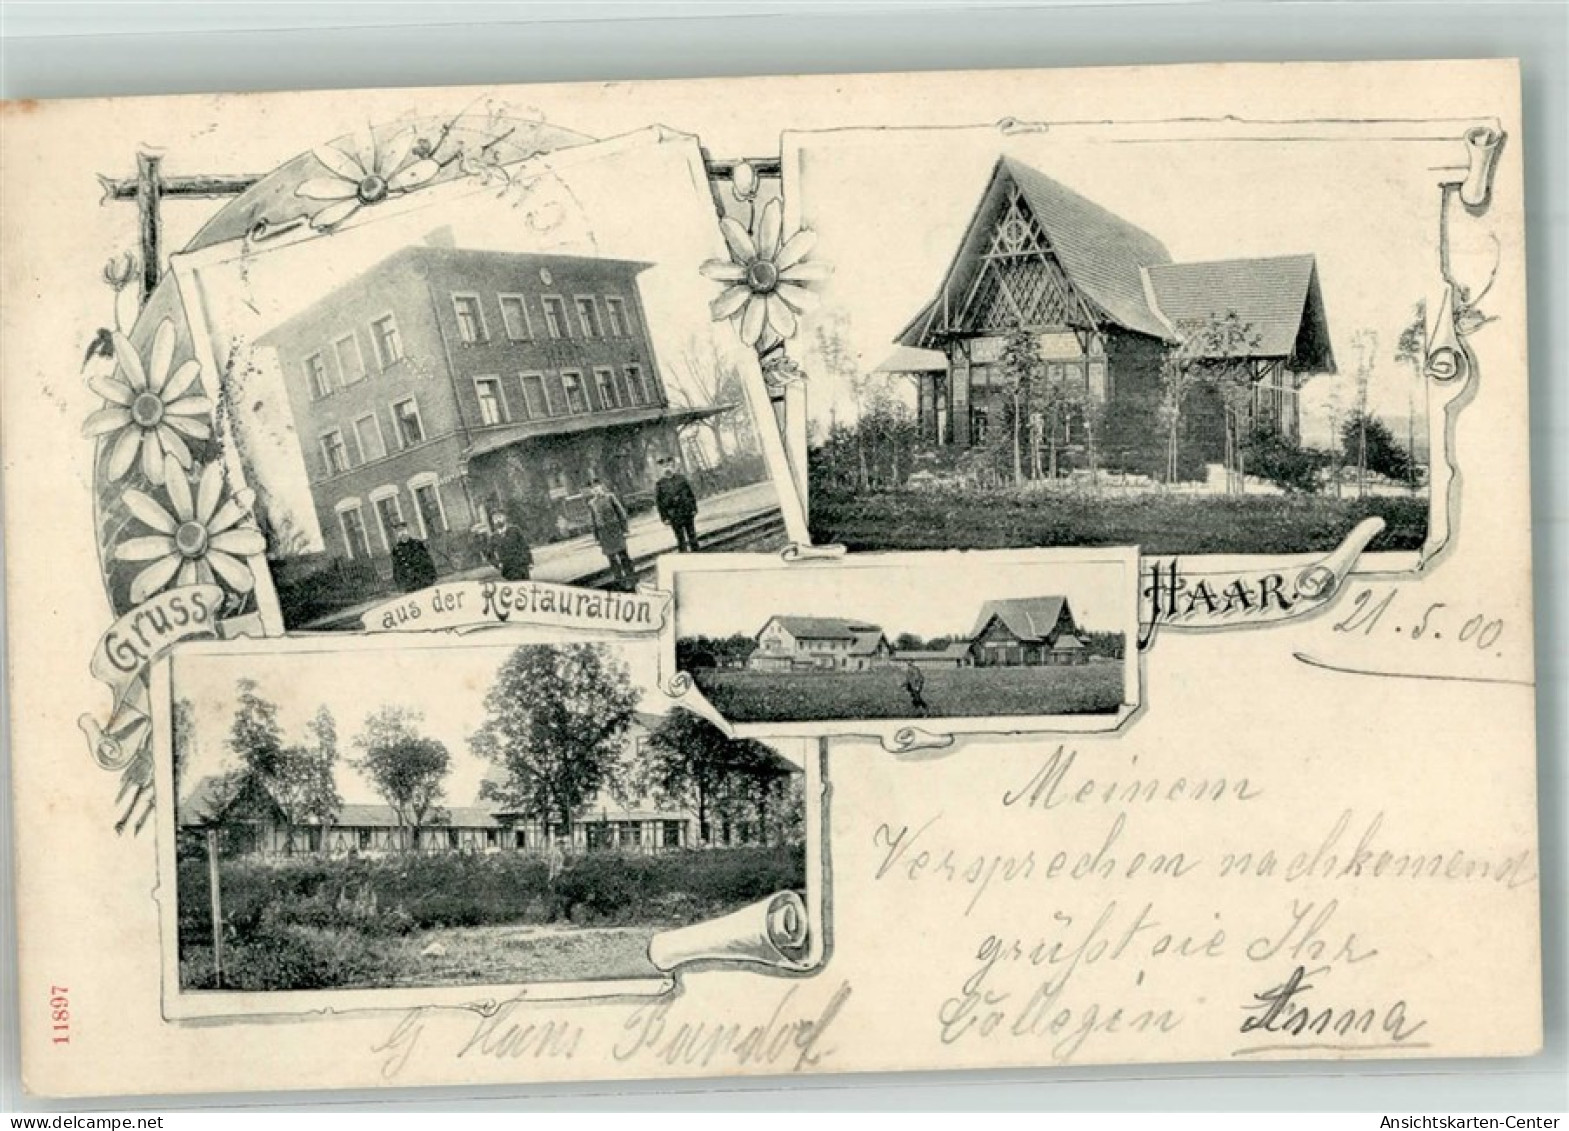 Gruss
aus der Restauration
HAAR.
21.5.00.
Meinem
Versprechen nachkomend
grüßt sie Ihr
Collegin Anna
Hans
11897
Ansichtskarten-Center